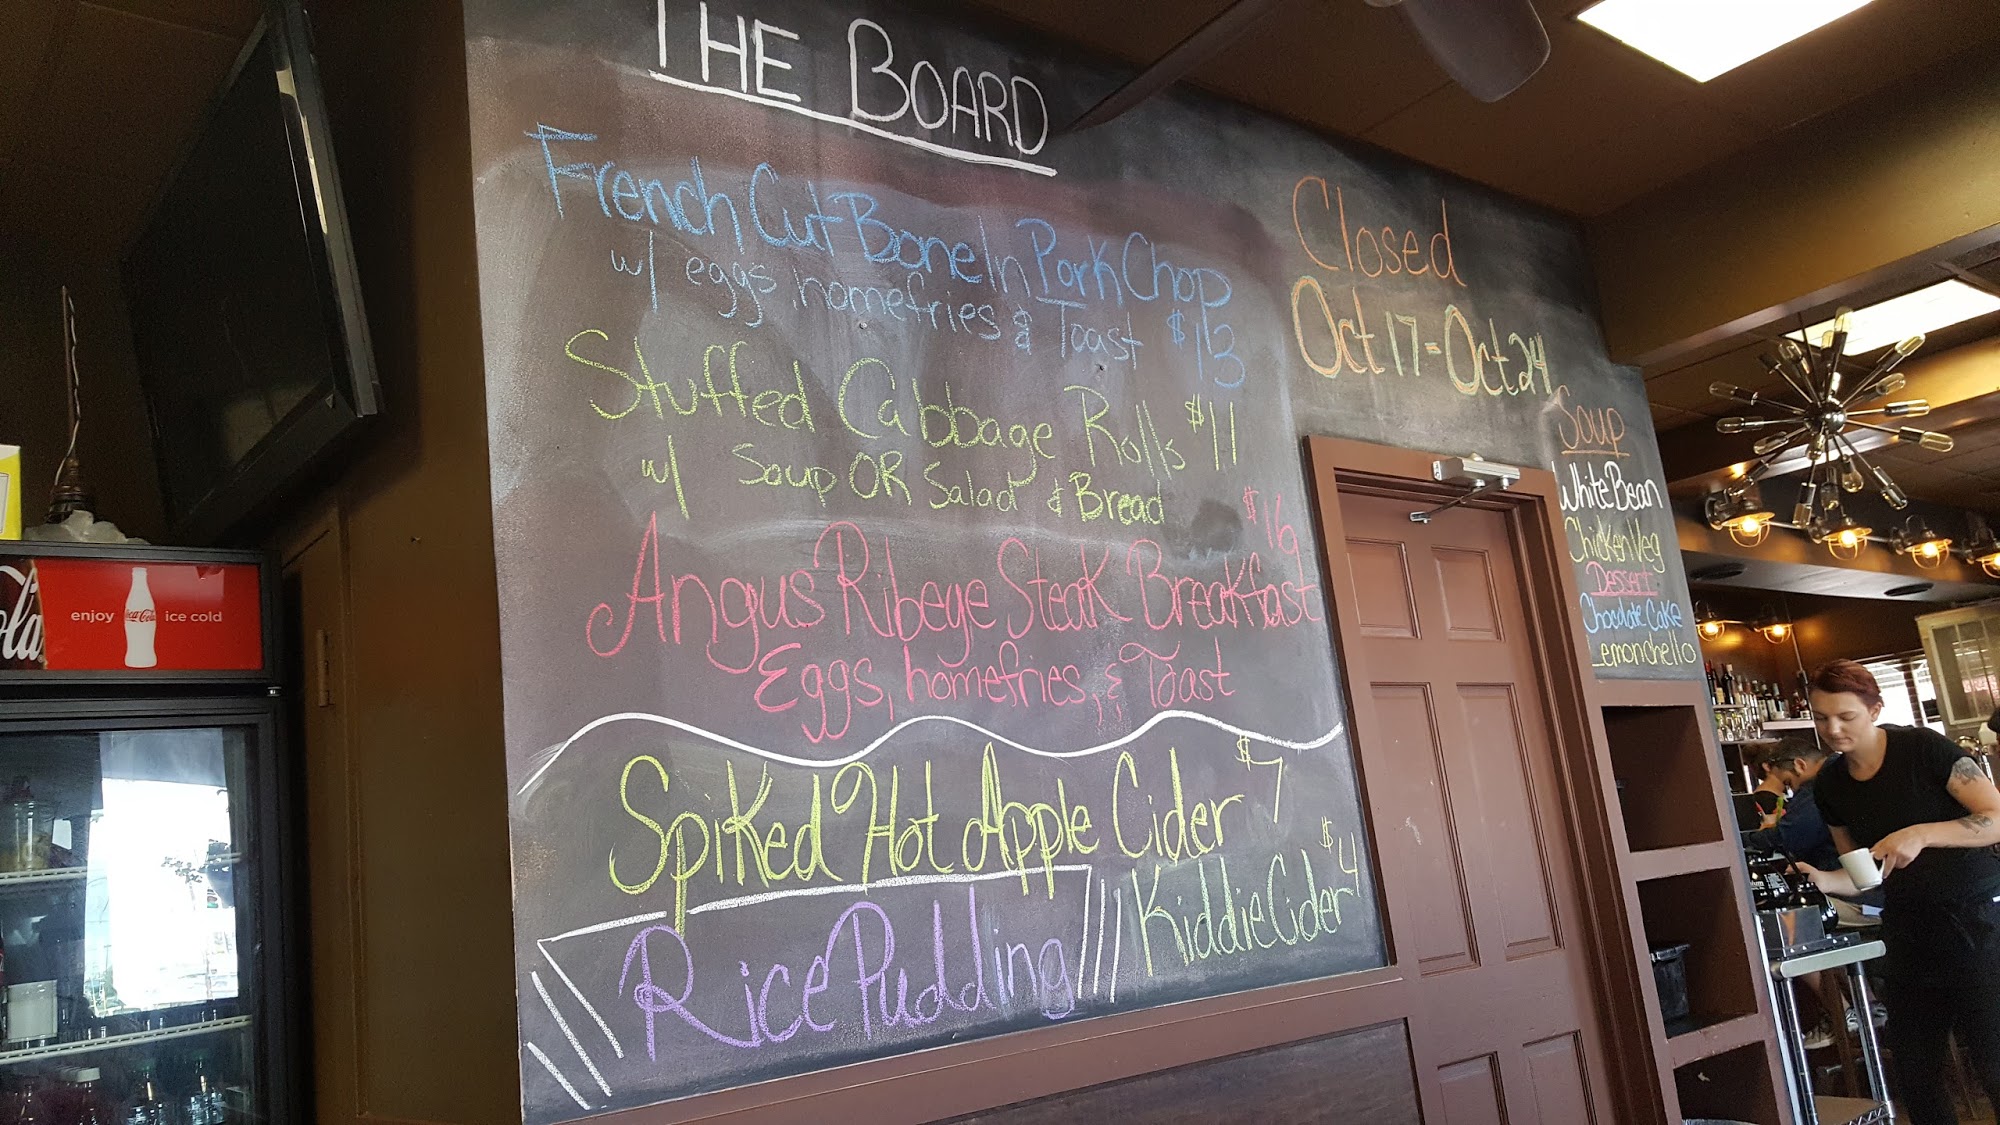 THE BOARD
French Cut Bone In Pork Chop
w/ eggs, homefries & Toast $13
Stuffed Cabbage Rolls $11
w/ Soup OR Salad & Bread
$16
Angus Ribeye Steak Breakfast
Eggs, homefries, & Toast
Spiked Hot Apple Cider $7
Rice Pudding
Kiddie Cider $4
Closed
Oct 17 - Oct 24
Soup
White Bean
Chicken Veg
Dessert
Chocolate Cake
Lemonchello
enjoy Coca-Cola ice cold